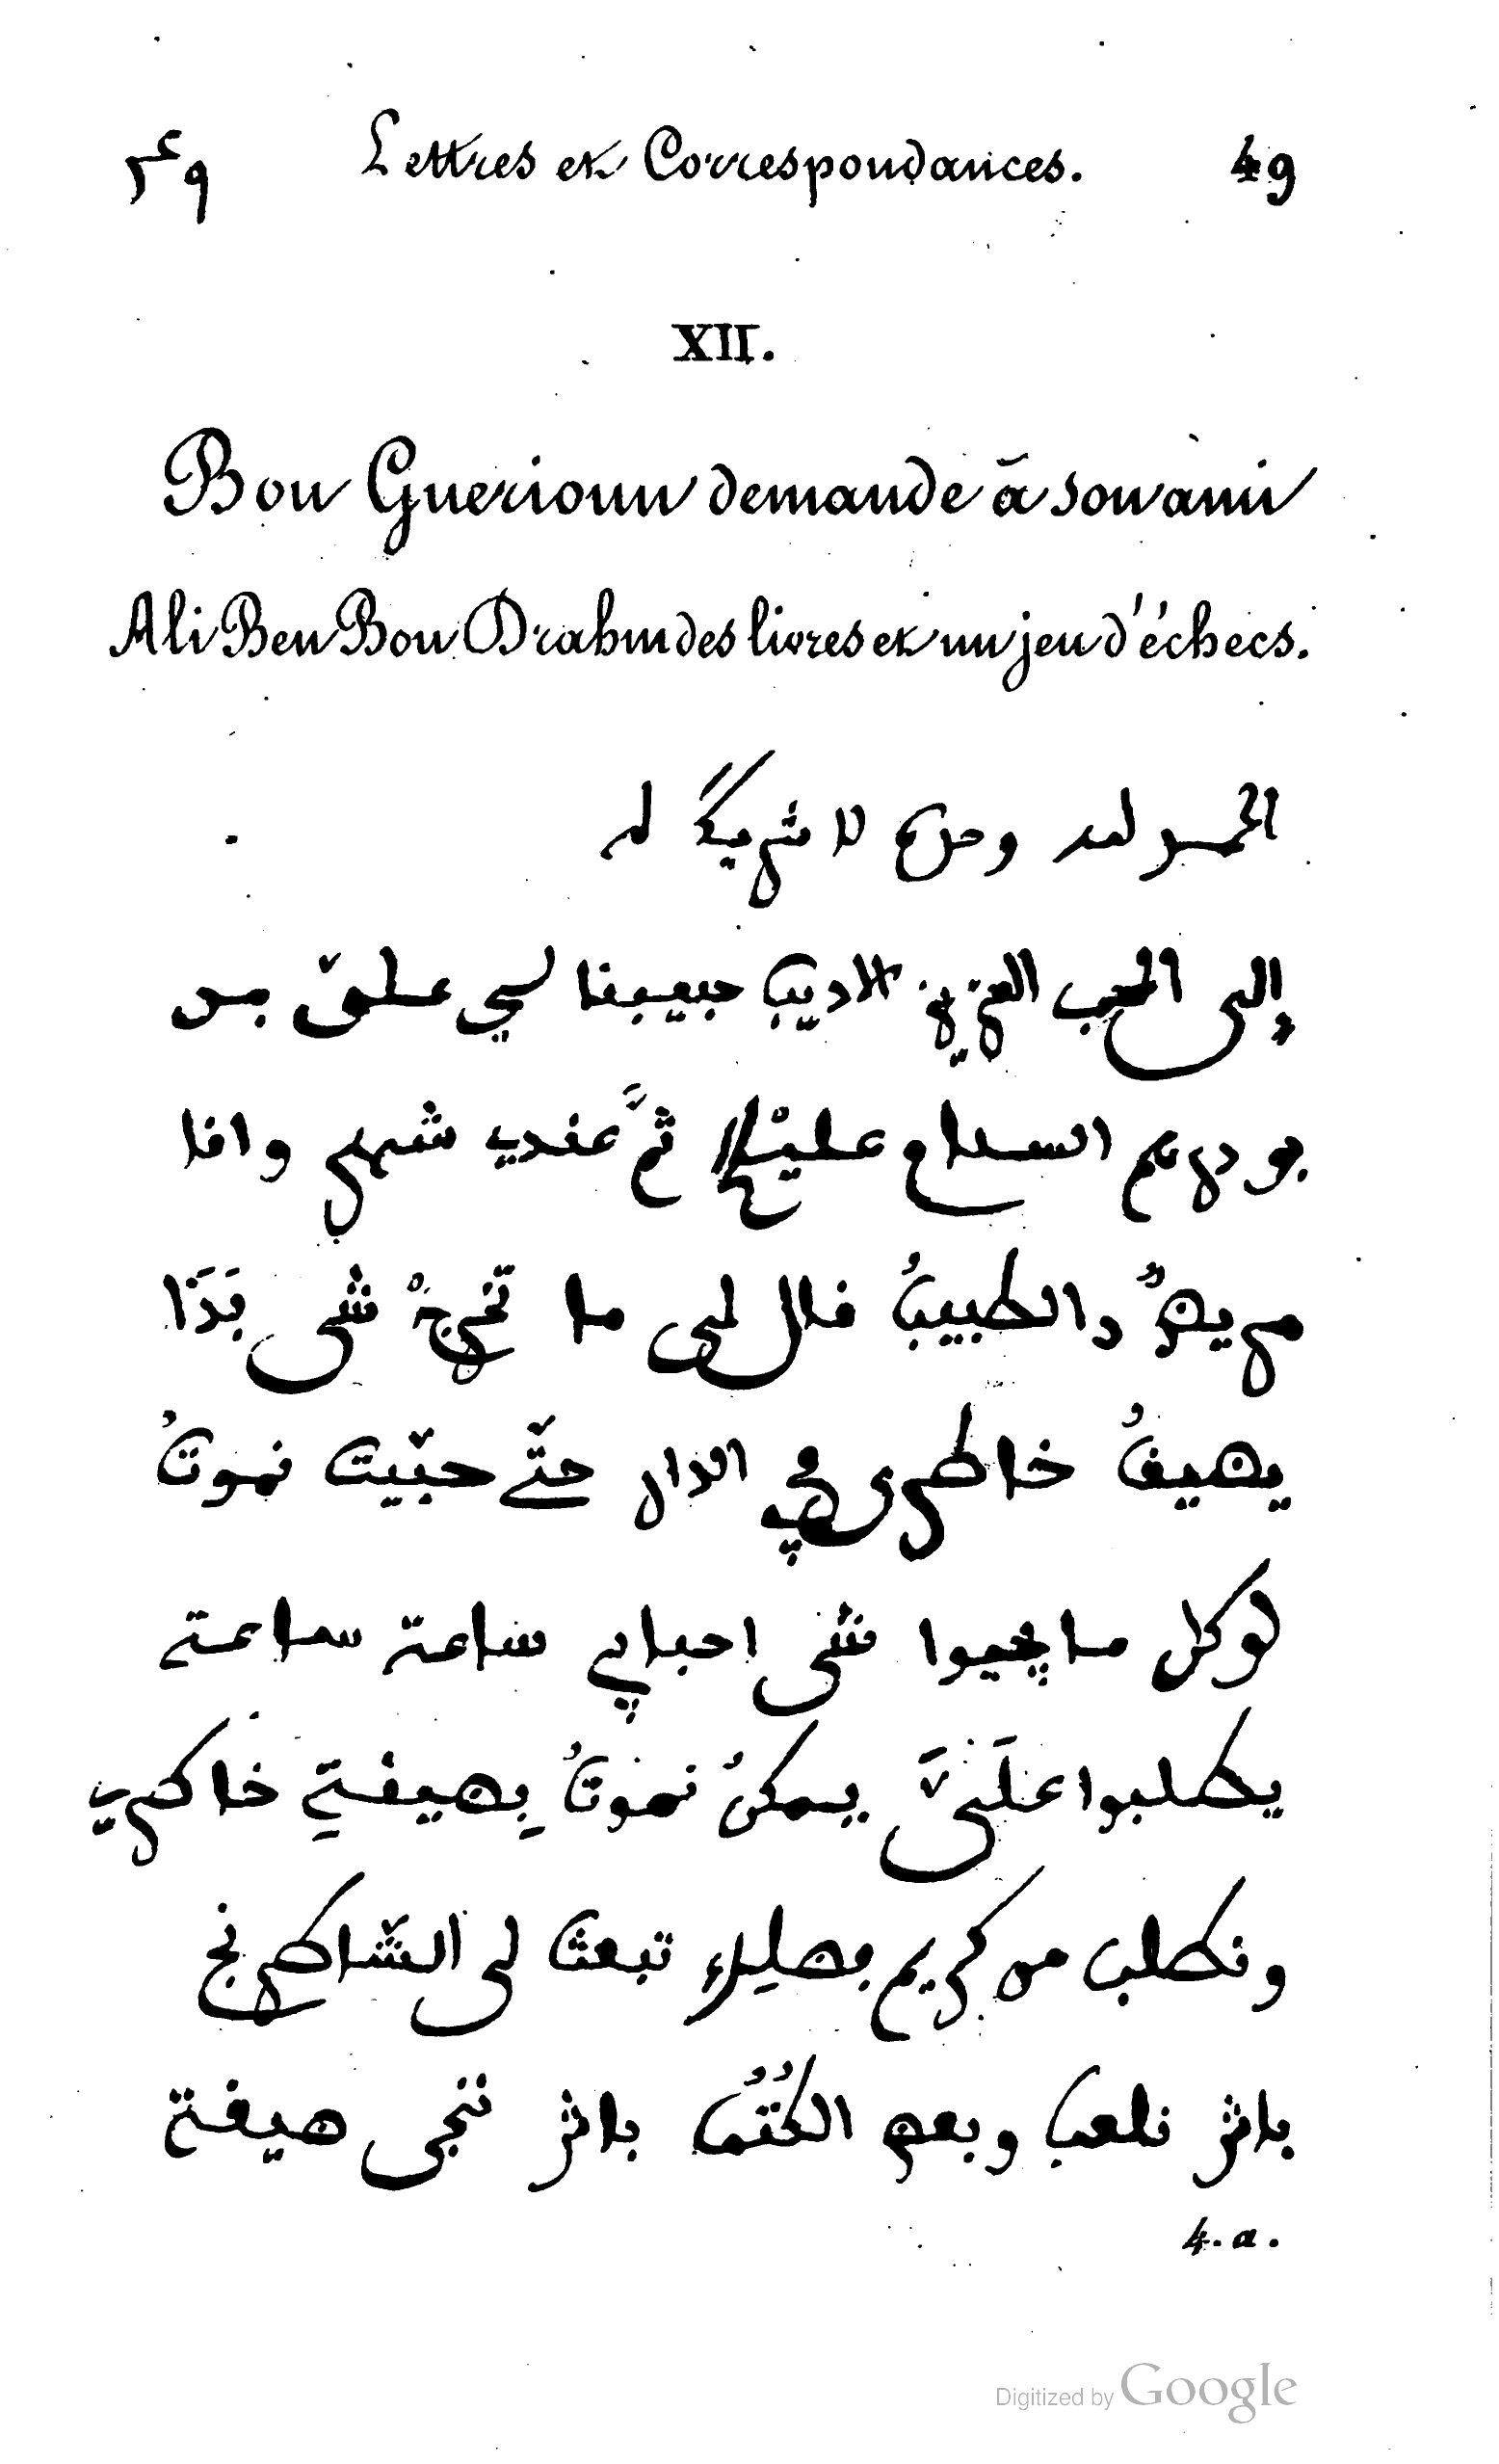 ٤٩ Lettres et Correspondances. 49
XII.
Bou Guerioun demande à son ami
Ali Ben Bou Drahm des livres et un jeu d'échecs.
الحمد لله وحده لا شريك له
إلى المحب العزيز الاديب حبيبنا سي علي بن
بو درهم السلام عليك ثم عندي شهر وانا
مريض والطبيب فال لي ما تخرج شي بَرَّا
يضيف خاطري في الدار حتّى حبّيت نموت
لوكان ما يجيوا شي احبابي ساعة ساعة
يطلبوا عليَّ يمكن نموت بضيفة خاطري
ونطلب من كريم بضلك تبعث لي الشّاطرنج
باش نلعب وبعض الكُتُب باش تنجى ضيفة
4. a.
Digitized by Google